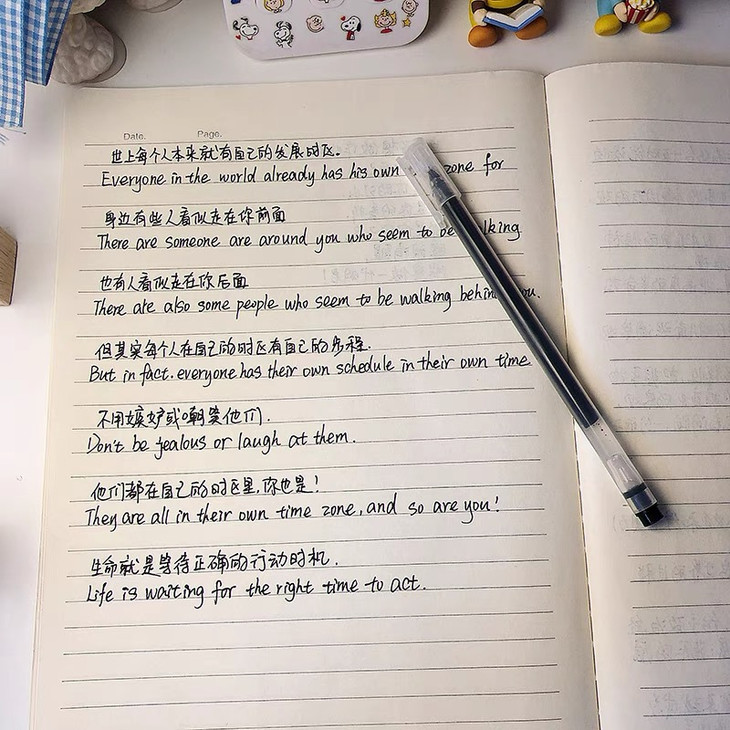 Date. Page.
世上每个人本来就有自己的发展时区.
Everyone in the world already has his own zone for
身边有些人看似走在你前面
There are someone are around you who seem to be lking
也有人看似走在你后面
There are also some people who seem to be walking behin ou.
但其实每个人在自己的时区有自己的步程.
But in fact. everyone has their own schedule in their own time
不用嫉妒或嘲笑他们.
Don't be jealous or laugh at them.
他们都在自己的时区里,你也是!
They are all in their own time zone, and so are you!
生命就是等待正确的行动时机.
Life is waiting for the right time to act.